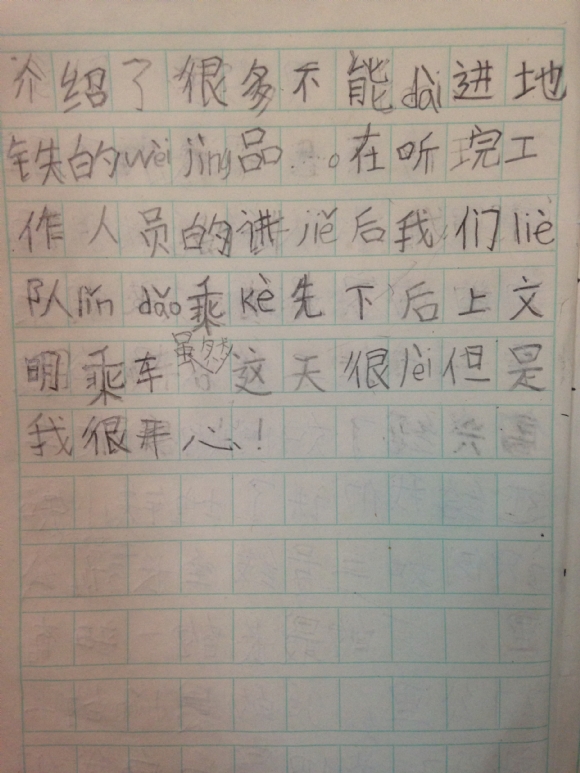 介绍了很多不能dài进地
铁的wèi jìng品...。在听完工
作人员的讲jiě后我们liè
队lǐn dǎo乘kè先下后上文
明乘车虽然这天很lèi但是
我很开心!